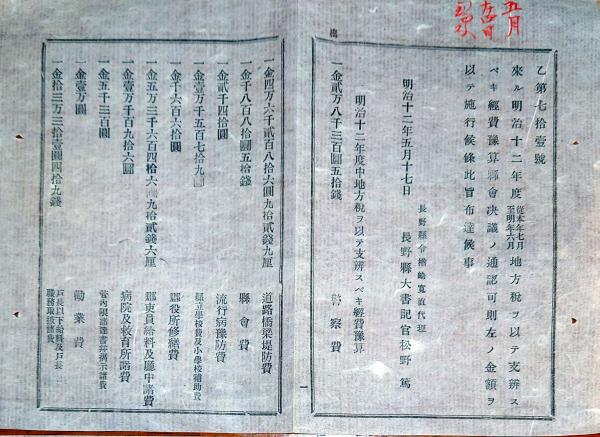 五月
乙第七拾壹號
來ル明治十二年度從本年七月至明年六月地方税ヲ以テ支辨ス
ベキ經費豫算縣會決議ノ通認可則左ノ金額ヲ
以テ施行候條此旨布達候事
明治十二年五月十七日
長野縣令楢崎寛直代理
長野縣大書記官松野篤
明治十二年度中地方税ヲ以テ支辨スベキ經費豫算
一金貳万八千三百圓五拾錢 警察費
一金四万六千貳百八拾六圓九拾貳錢九厘 道路橋梁堤防費
一金千八百八拾圓五拾錢 縣會費
一金貳千四拾圓 流行病豫防費
一金壹万千五百七拾九圓 縣立學校費及小學校補助費
一金千六百六拾圓 郡役所修繕費
一金五万三千六百四拾六圓九拾貳錢六厘 郡吏員給料及郡中諸費
一金壹万千百九拾六圓 病院及救育所諸費
一金五千三百圓 管內限諸達書并揭示諸費
一金壹万圓 勸業費
一金拾三万三拾壹圓四拾九錢 戶長以下給料及戶長職務取扱諸費